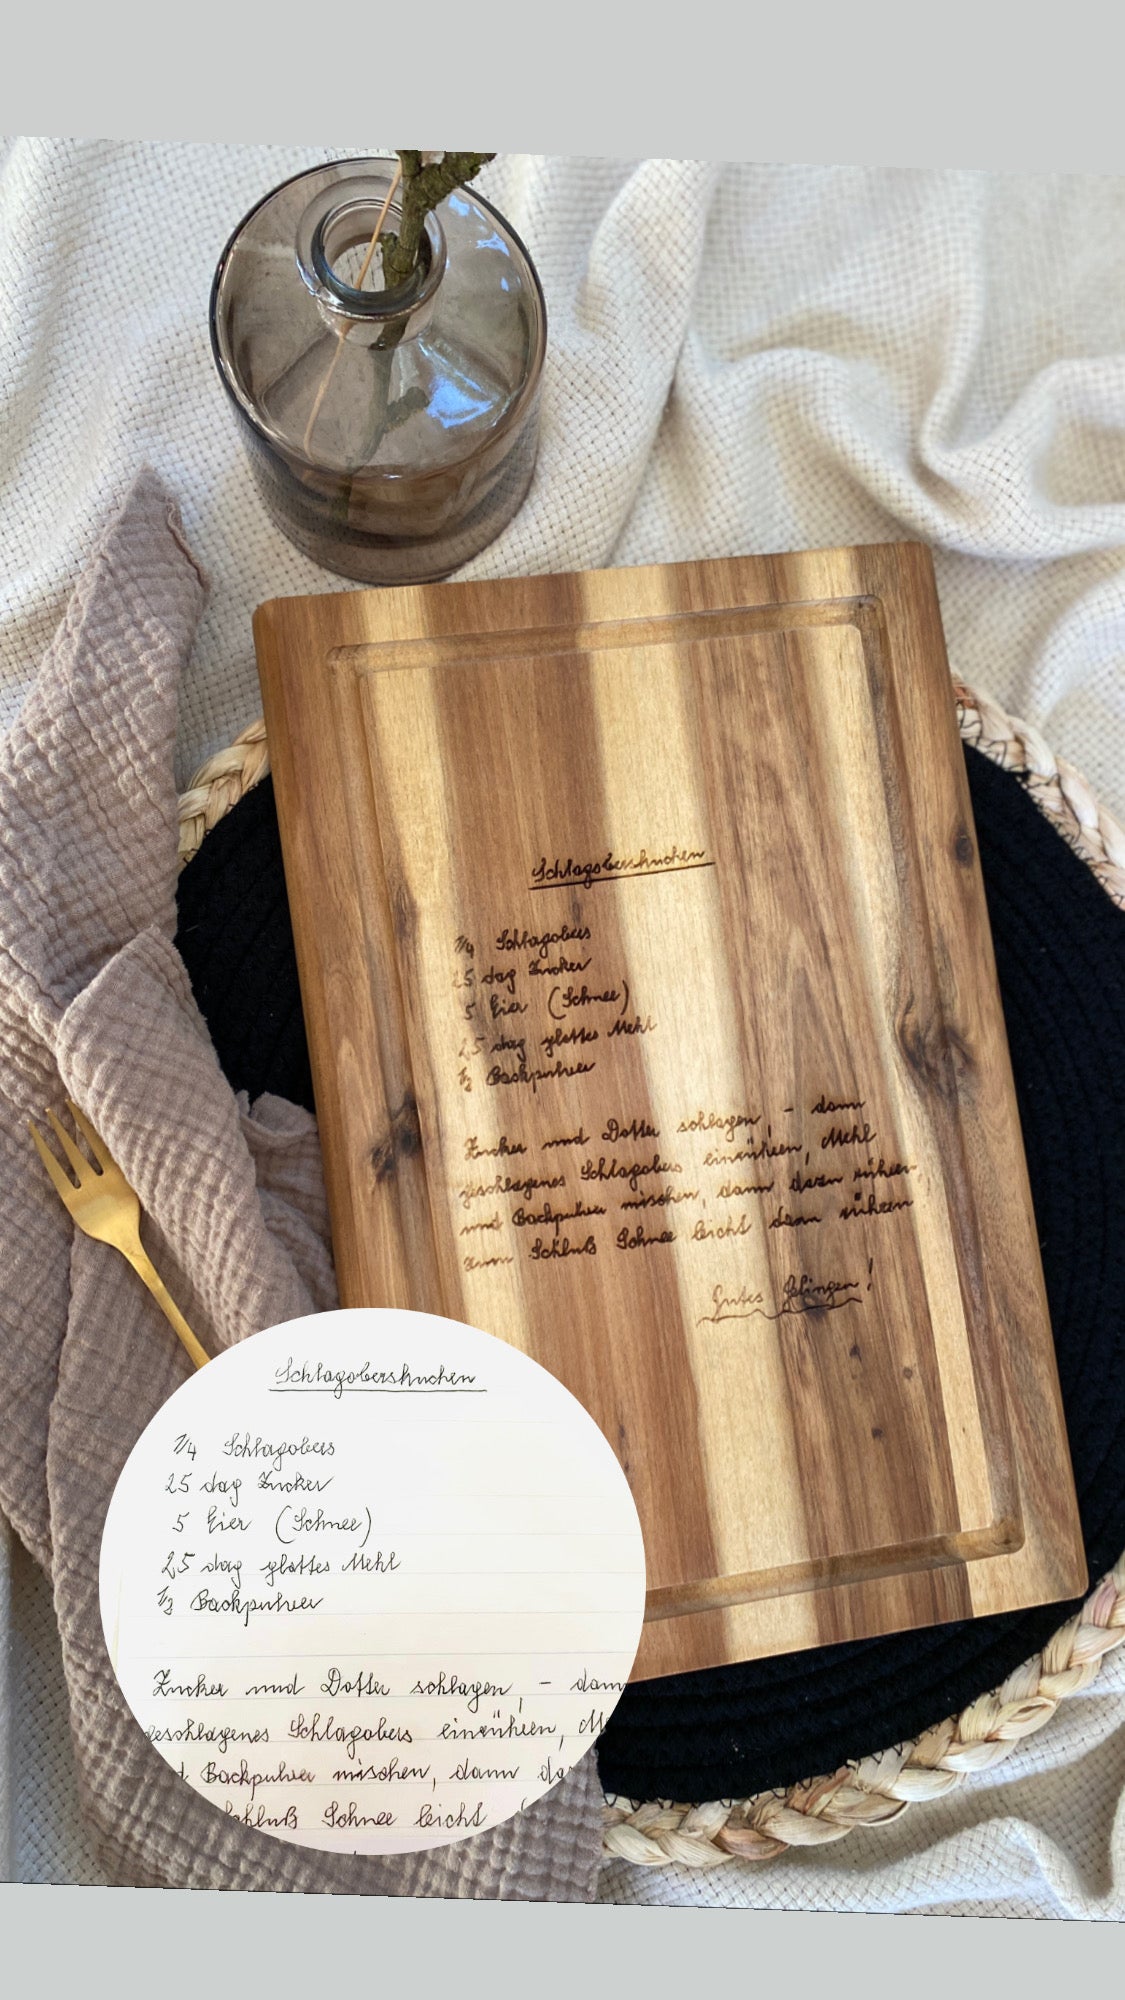 Schlagoberskuchen
1/4 Schlagobers
25 dag Zucker
5 Eier (Schnee)
25 dag glattes Mehl
1/2 Backpulver
Zucker und Dotter schlagen, - dann
geschlagenes Schlagobers einrühren, Mehl
und Backpulver mischen, dann dazu rühren,
zum Schluß Schnee leicht dann rühren
Gutes Gelingen!
Schlagoberskuchen
1/4 Schlagobers
25 dag Zucker
5 Eier (Schnee)
25 dag glattes Mehl
1/2 Backpulver
Zucker und Dotter schlagen, - dann
geschlagenes Schlagobers einrühren, M
Backpulver mischen, dann
Schluß Schnee leicht